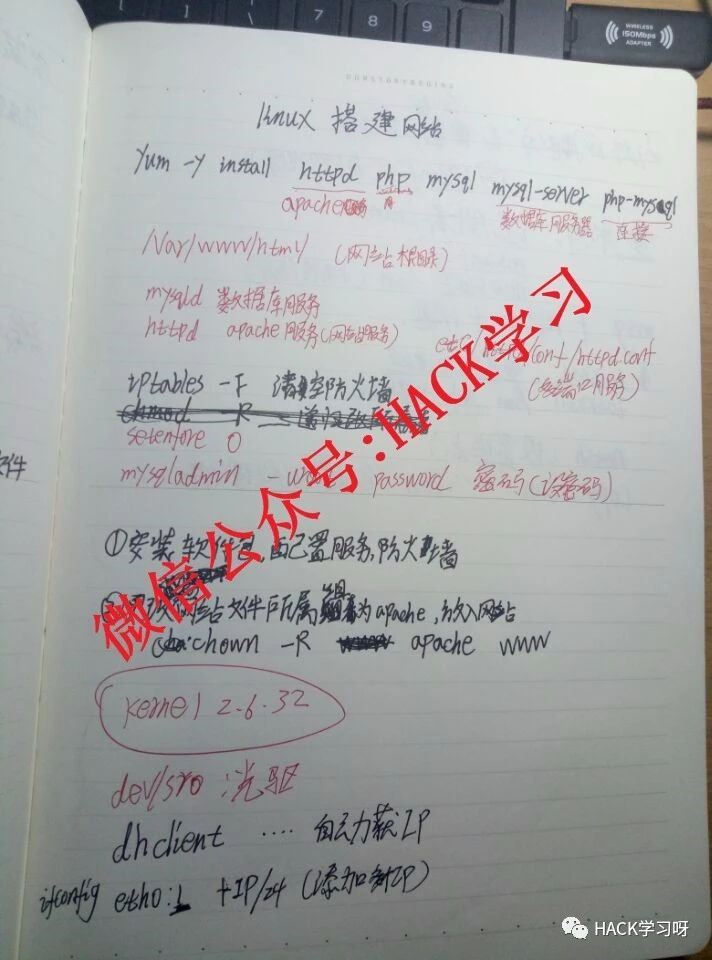 7 8 9
WIRELESS
150Mbps
ADAPTER
linux 搭建网站
yum -y install httpd php mysql mysql-server php-mysql
apache服务 数据库服务器 连接
/var/www/html/ (网站根目录)
mysqld 数据库服务
httpd apache服务(网站服务)
etc/httpd/conf/httpd.conf
(改端口服务)
iptables -F 清空防火墙
setenfore 0
mysqladmin password 密码(设密码)
①安装软件包 配置服务,防火墙
网站文件 所属组为apache,放入网站
chown -R apache www
kernel 2.6.32
dev/sro:光驱
dhclient .... 自动获IP
ifconfig etho:1 +IP/24 (添加新IP)
件
微信公众号:HACK学习
HACK学习呀